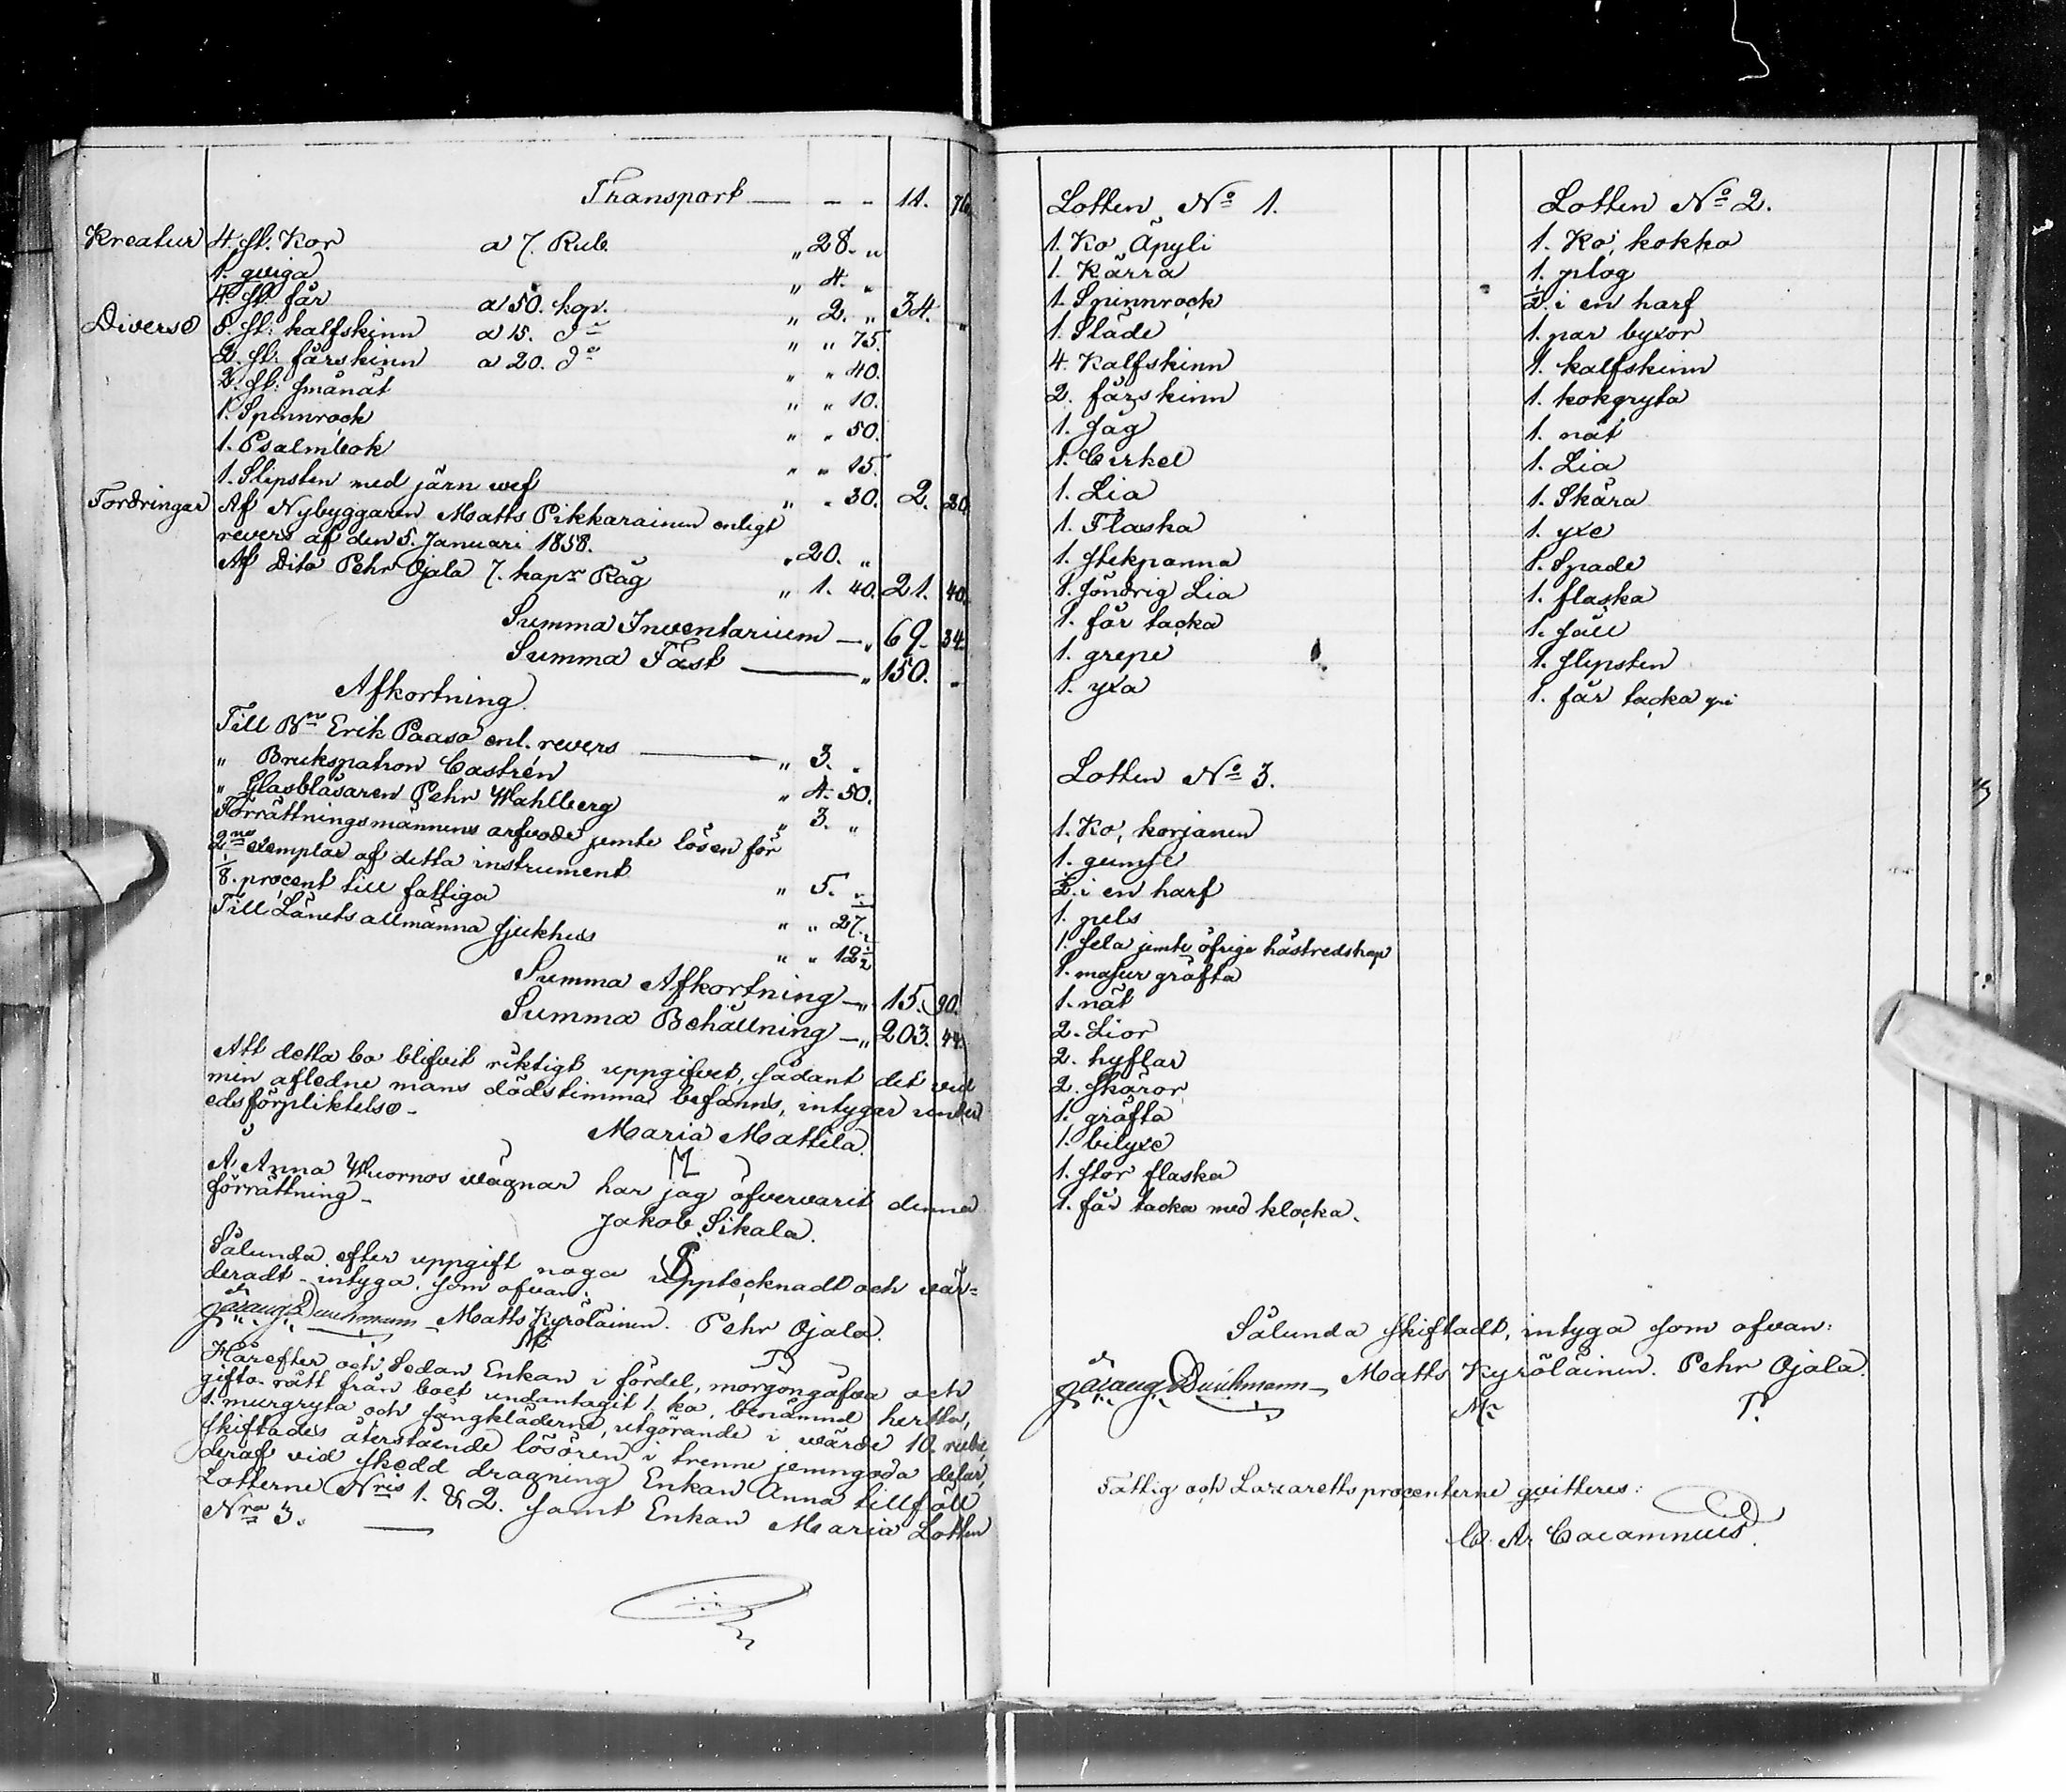 Transport — - - 11. 76.
Kreatur 4. st. Kor a 7. Rub. " 28. "
1. qviga " 4. "
4. st. får a 50. kop. " 2. " 34. "
Diverse 5. st: kalfskinn a 15. do " " 75.
2. st: fårskinn a 20. do " " 40.
2. st: smånät " " 10.
1. Spinnrock " " 50.
1. Psalmbok " " 15.
1. Slipsten med järn wef " " 30. 2. 20.
Fordringar Af Nybyggaren Matts Pikkarainen enligt
revers af den 5. Januari 1858. " 20. "
Af Dito Pehr Ojala 7. kapr Råg " 1. 40. 21. 40.
Summa Inventarium — " 69. 34.
Summa Fast — " 150. "
Afkortning.
Till Bn Erik Paaso enl. revers — " 3. "
" Brukspatron Castrén " 4. 50.
" Glasblåsaren Pehr Wahlberg " 3. "
Förrättningsmännens arfvode jemte lösen för
2ne exemplar af detta instrument " 5. "
1/8. procent till fattiga " " 27 1/2
Till Länets allmänna sjukhus " " 12 1/2
Summa Afkortning — " 15. 90.
Summa Behållning — " 203. 44.
Att detta bo blifvit riktigt uppgifvet, sådant det vid
min afledne mans dödstimma befanns, intygar under
edsförpliktelse -
Maria Mattila.
M
Å Anna Wuornos wägnar har jag öfvervarit denna
förrättning -
Jakob Sikala.
Sålunda efter uppgift noga upptecknadt och vär=
deradt - intyga som ofvan:
Matts Kyröläinen. Pehr Ojala.
Härefter och Sedan Enkan i fördel, morgongåfva och
gifto-rätt från boet undantagit 1. ko, benämnd hertta,
1. murgryta och sängkläderne, utgörande i wärde 10. rubel,
skiftades återstående lösören i trenne jemngoda delar,
deraf vid skedd dragning Enkan Anna tillföll
Lotterne Nris 1. & 2. samt Enkan Maria Lotten
Nro 3. —
Lotten No 1.
1. Ko Äpyli
1. Kärra
1. Spinnrock
1. Släde
4. Kalfskinn
2. fårskinn
1. såg
1. Cirkel
1. Lia
1. Flaska
1. stekpanna
1. söndrig Lia
1. får tacka
1. grepe
1. yxa
Lotten No 2.
1. Ko, kokko
1. plog
1/2 i en harf
1. par byxor
1. kalfskinn
1. kokgryta
1. nät
1. Lia
1. Skära
1. yxe
1. Spade
1. flaska
1. fäll
1. slipsten
1. får tacka
Lotten No 3.
1. Ko, korjanen
1. gumse
1/2 i en harf
1. pels
1. sela jemte öfrige hästredskap
1. masur gräfta
1. nät
2. Lior
2. hyflar
2. skäror
1. gräfta
1. bilyxe
1. stor flaska
1. får tacka med klocka.
Sålunda skiftadt, intyga som ofvan:
Matts Kyröläinen. Pehr Ojala.
Fattig och Lazaretts procenterne qvitteres:
C. A. Cacamnuis